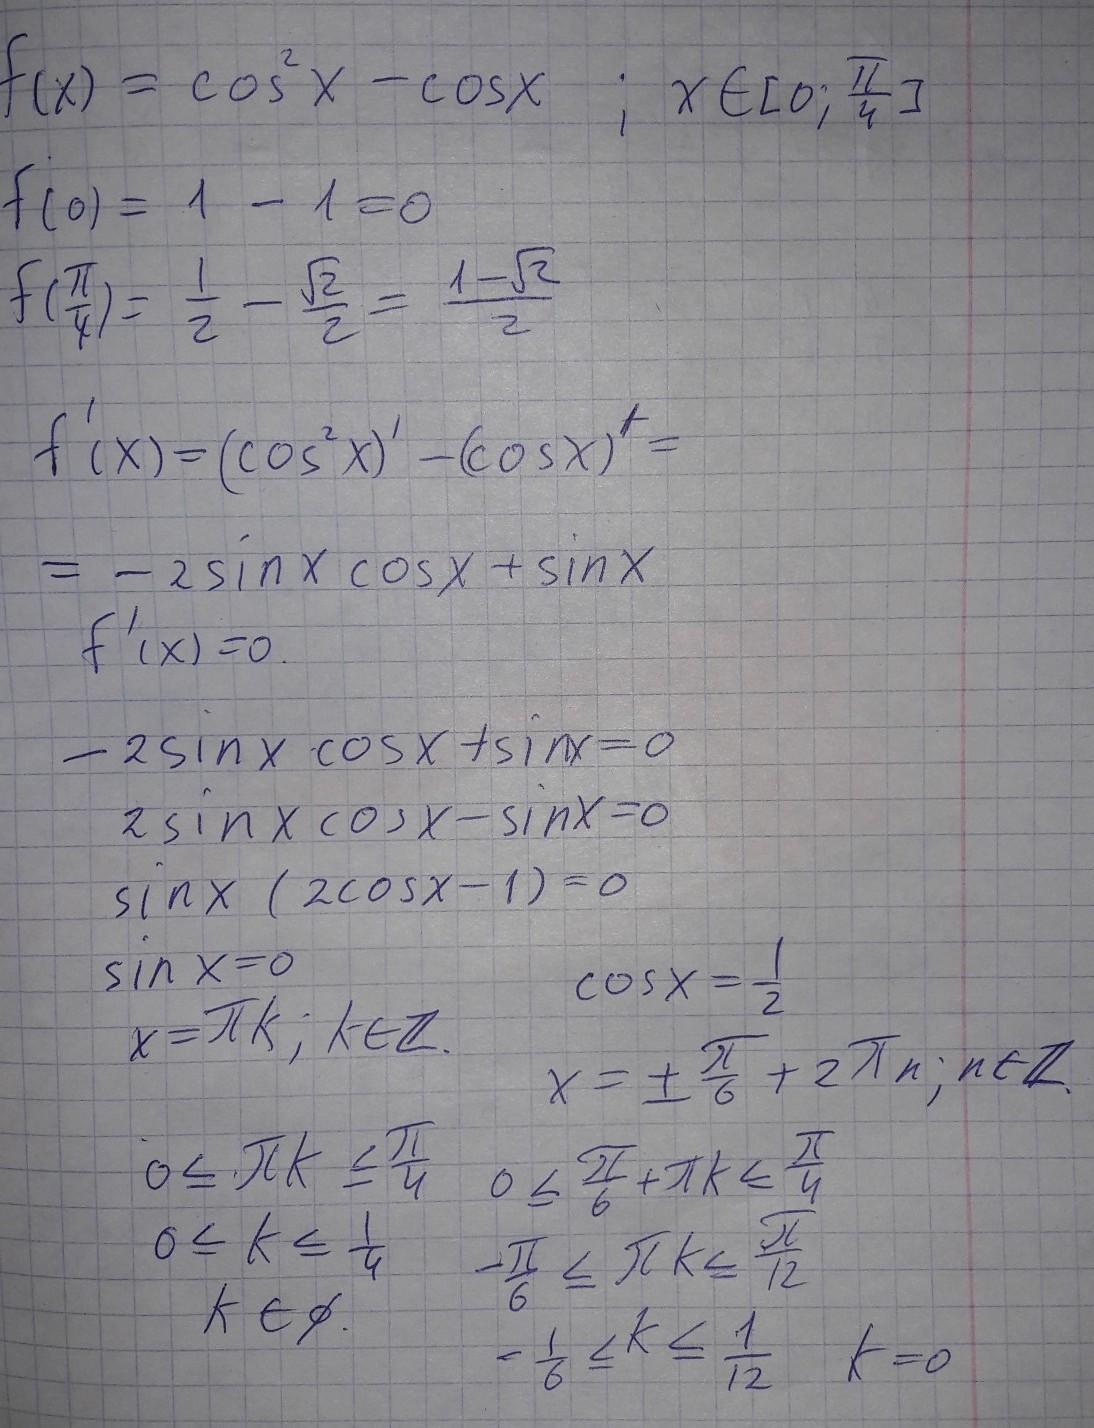 f(x) = cos²x − cosx ; x∈[0; π/4]
f(0) = 1 − 1 = 0
f(π/4) = 1/2 − √2/2 = (1−√2)/2
f'(x) = (cos²x)' − (cosx)' =
= −2sinx cosx + sinx
f'(x) = 0.
−2sinx cosx + sinx = 0
2sinx cosx − sinx = 0
sinx (2cosx − 1) = 0
sinx = 0 cosx = 1/2
x = πk; k∈ℤ. x = ± π/6 + 2πn; n∈ℤ.
0 ≤ πk ≤ π/4 0 ≤ π/6 + πk ≤ π/4
0 ≤ k ≤ 1/4 −π/6 ≤ πk ≤ π/12
k ∈ ∅. −1/6 ≤ k ≤ 1/12 k = 0